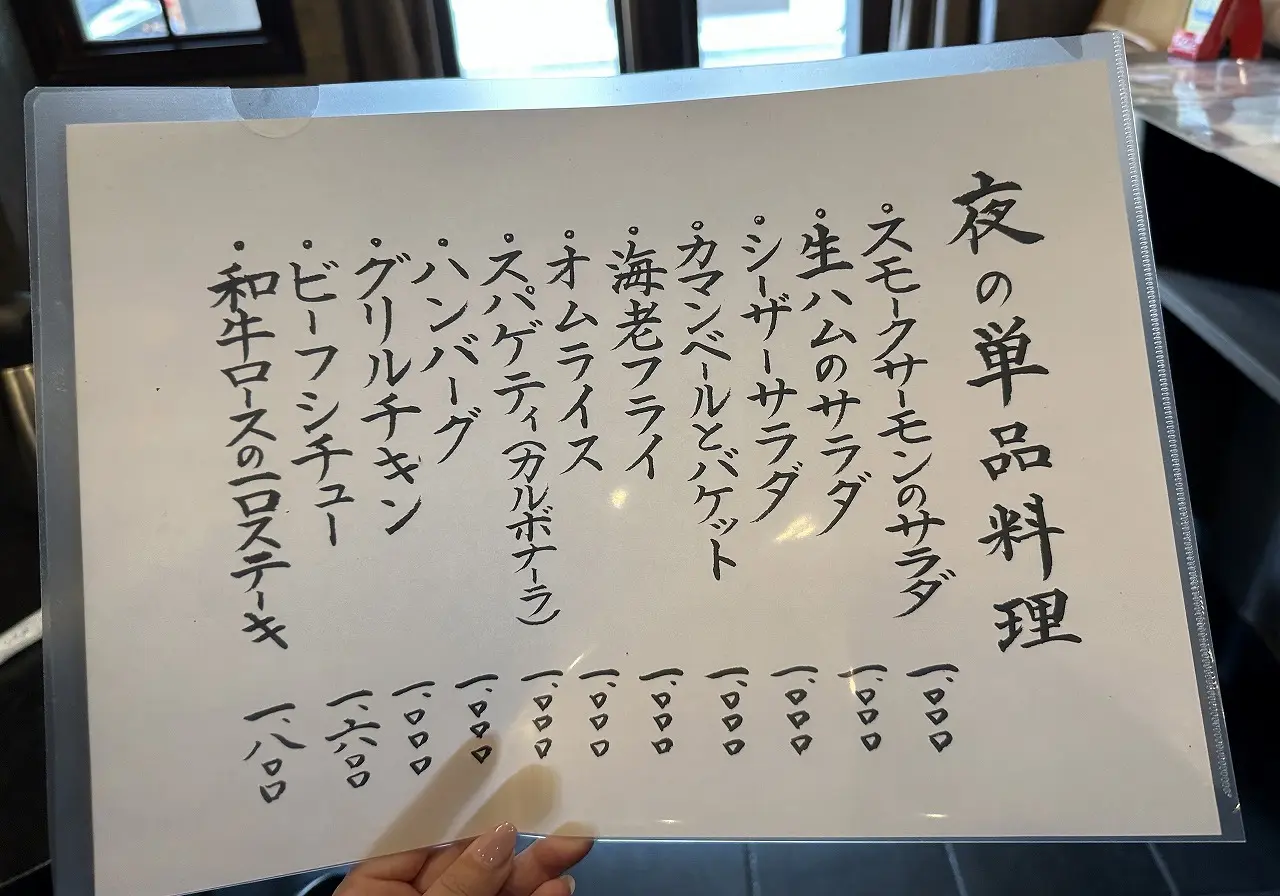 夜の単品料理
・スモークサーモンのサラダ 一、〇〇〇
・生ハムのサラダ 一、〇〇〇
・シーザーサラダ 一、〇〇〇
・カマンベールとバケット 一、〇〇〇
・海老フライ 一、〇〇〇
・オムライス 一、〇〇〇
・スパゲティ(カルボナーラ) 一、〇〇〇
・ハンバーグ 一、〇〇〇
・グリルチキン 一、〇〇〇
・ビーフシチュー 一、六〇〇
・和牛ロースの一口ステーキ 一、八〇〇